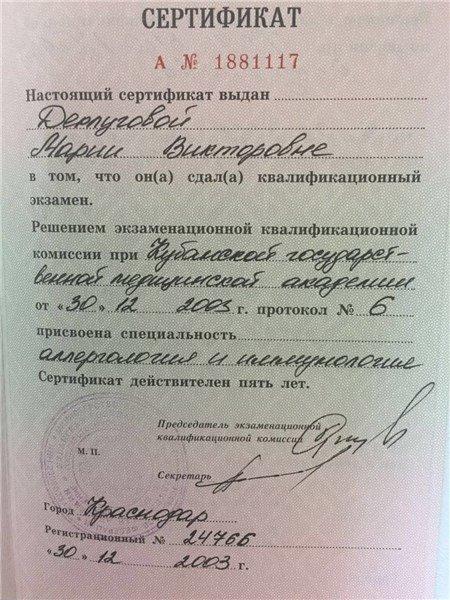 СЕРТИФИКАТ
А № 1881117
Настоящий сертификат выдан
Демуговой
Марии Викторовне
в том, что он(а) сдал(а) квалификационный
экзамен.
Решением экзаменационной квалификационной
комиссии при Кубанской государст-
венной медицинской академии
от «30» 12 2003 г. протокол № 6
присвоена специальность
аллергология и иммунология
Сертификат действителен пять лет.
Председатель экзаменационной
квалификационной комиссии
М. П.
Секретарь
Город Краснодар
Регистрационный № 24766
«30» 12 2003 г.